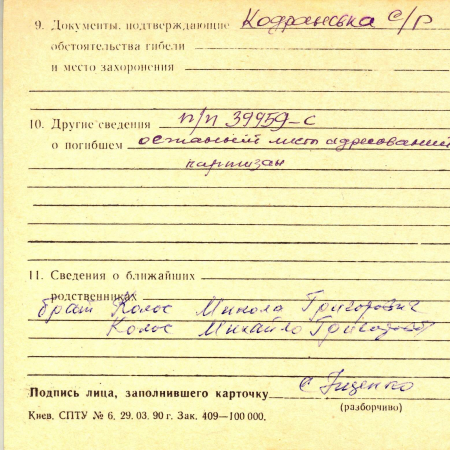 9. Документы, подтверждающие Кодранська С/Р
обстоятельства гибели
и место захоронения
10. Другие сведения п/п 39959-с
о погибшем останній лист адресований
партизан
11. Сведения о ближайших
родственниках
брат Колос Микола Григорович
Колос Михайло Григорович
Подпись лица, заполнившего карточку
(разборчиво)
Киев, СПТУ № 6. 29. 03. 90 г. Зак. 409—100 000.